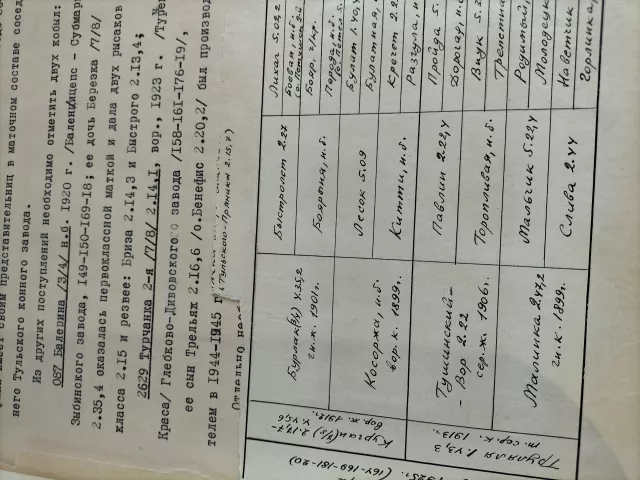 него Тульского конного завода.
Из других поступлений необходимо отметить двух кобыл:
087 Балерина /3/4/ н.б. 1920 г. /Баленцицепс - Субмари
Зыбинского завода, 149-150-169-18; ее дочь Березка /7/8/
2.35,4 оказалась первоклассной маткой и дала двух рысаков
класса 2.15 и резвее: Бриза 2.14,3 и Быстрого 2.13,4;
2629 Турчанка 2-я /7/8/ 2.14,1, вор., 1923 г. /Турени
Краса/ Глебково-Дивовского завода /158-161-176-19/,
ее сын Третьяк 2.16,6 /о.Бенефис 2.20,2/ был производи
телем в 1944-1945 г
(Тульского-Пряника 2.15,7)
Лихач 5.02,2
Боярыня, н.б.
Бояр. г/кр.
Порода, н.б.
Булат 1.40,4
Булатная,
Кречет 2.2
Разгула, н.
Пройда 5.
Дорогая, н.
Внук 5.2
Трепетная
Родимый,
Молодецк
Наветчик
Горлинка,
Быстролет 2.27
Бояроня, н.б.
Лесок 5.09
Китти, н.б.
Павлин 2.22,4
Торопливая, н.б.
Мальчик 5.22,4
Слива 2.44
Бурлак(3/4) 4.25,2
гн.ж. 1901г.
Косоржа, н.б.
вор.к. 1899г.
Тушинский-
- Вор 2.22
сер.ж. 1906г.
Малинка 2.47,2
гн.к. 1899г.
Курган(7/8) 2.17,7-
4.45,6
вор.ж. 1912г.
Труляля 1.43,3
т.сер.к. 1913г.
1925г. (164-169-181-20)